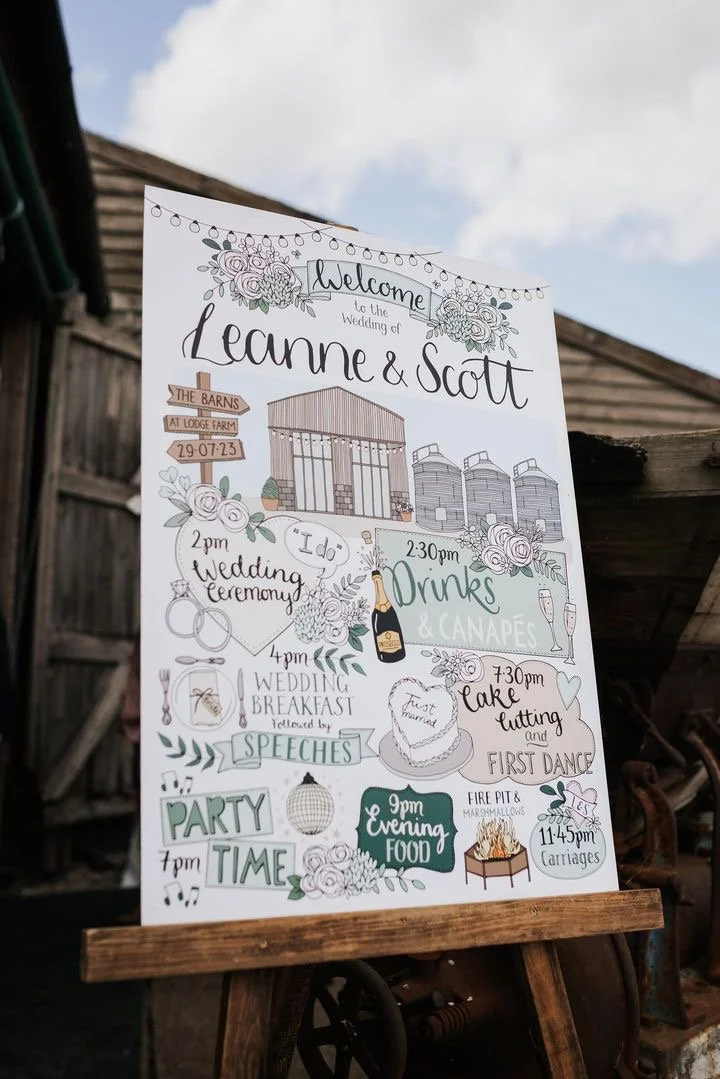 Welcome
to the
Wedding of
Leanne & Scott
THE BARNS
AT LODGE FARM
29·07·23
2pm
Wedding
Ceremony
"I do"
2:30pm
Drinks
& CANAPÉS
PROSECCO
4pm
WEDDING
BREAKFAST
Followed by
SPEECHES
Just
married
7:30pm
Cake
Cutting
and
FIRST DANCE
PARTY
7pm TIME
9pm
Evening
FOOD
FIRE PIT &
MARSHMALLOWS
11:45pm
Carriages